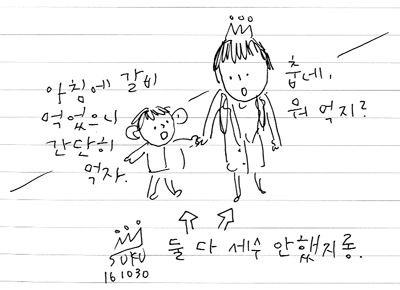 아침에 갈비
먹었으니
간단히
먹자.
춥네.
뭐 먹지?
둘 다 세수 안했지롱.
SUKU
161030